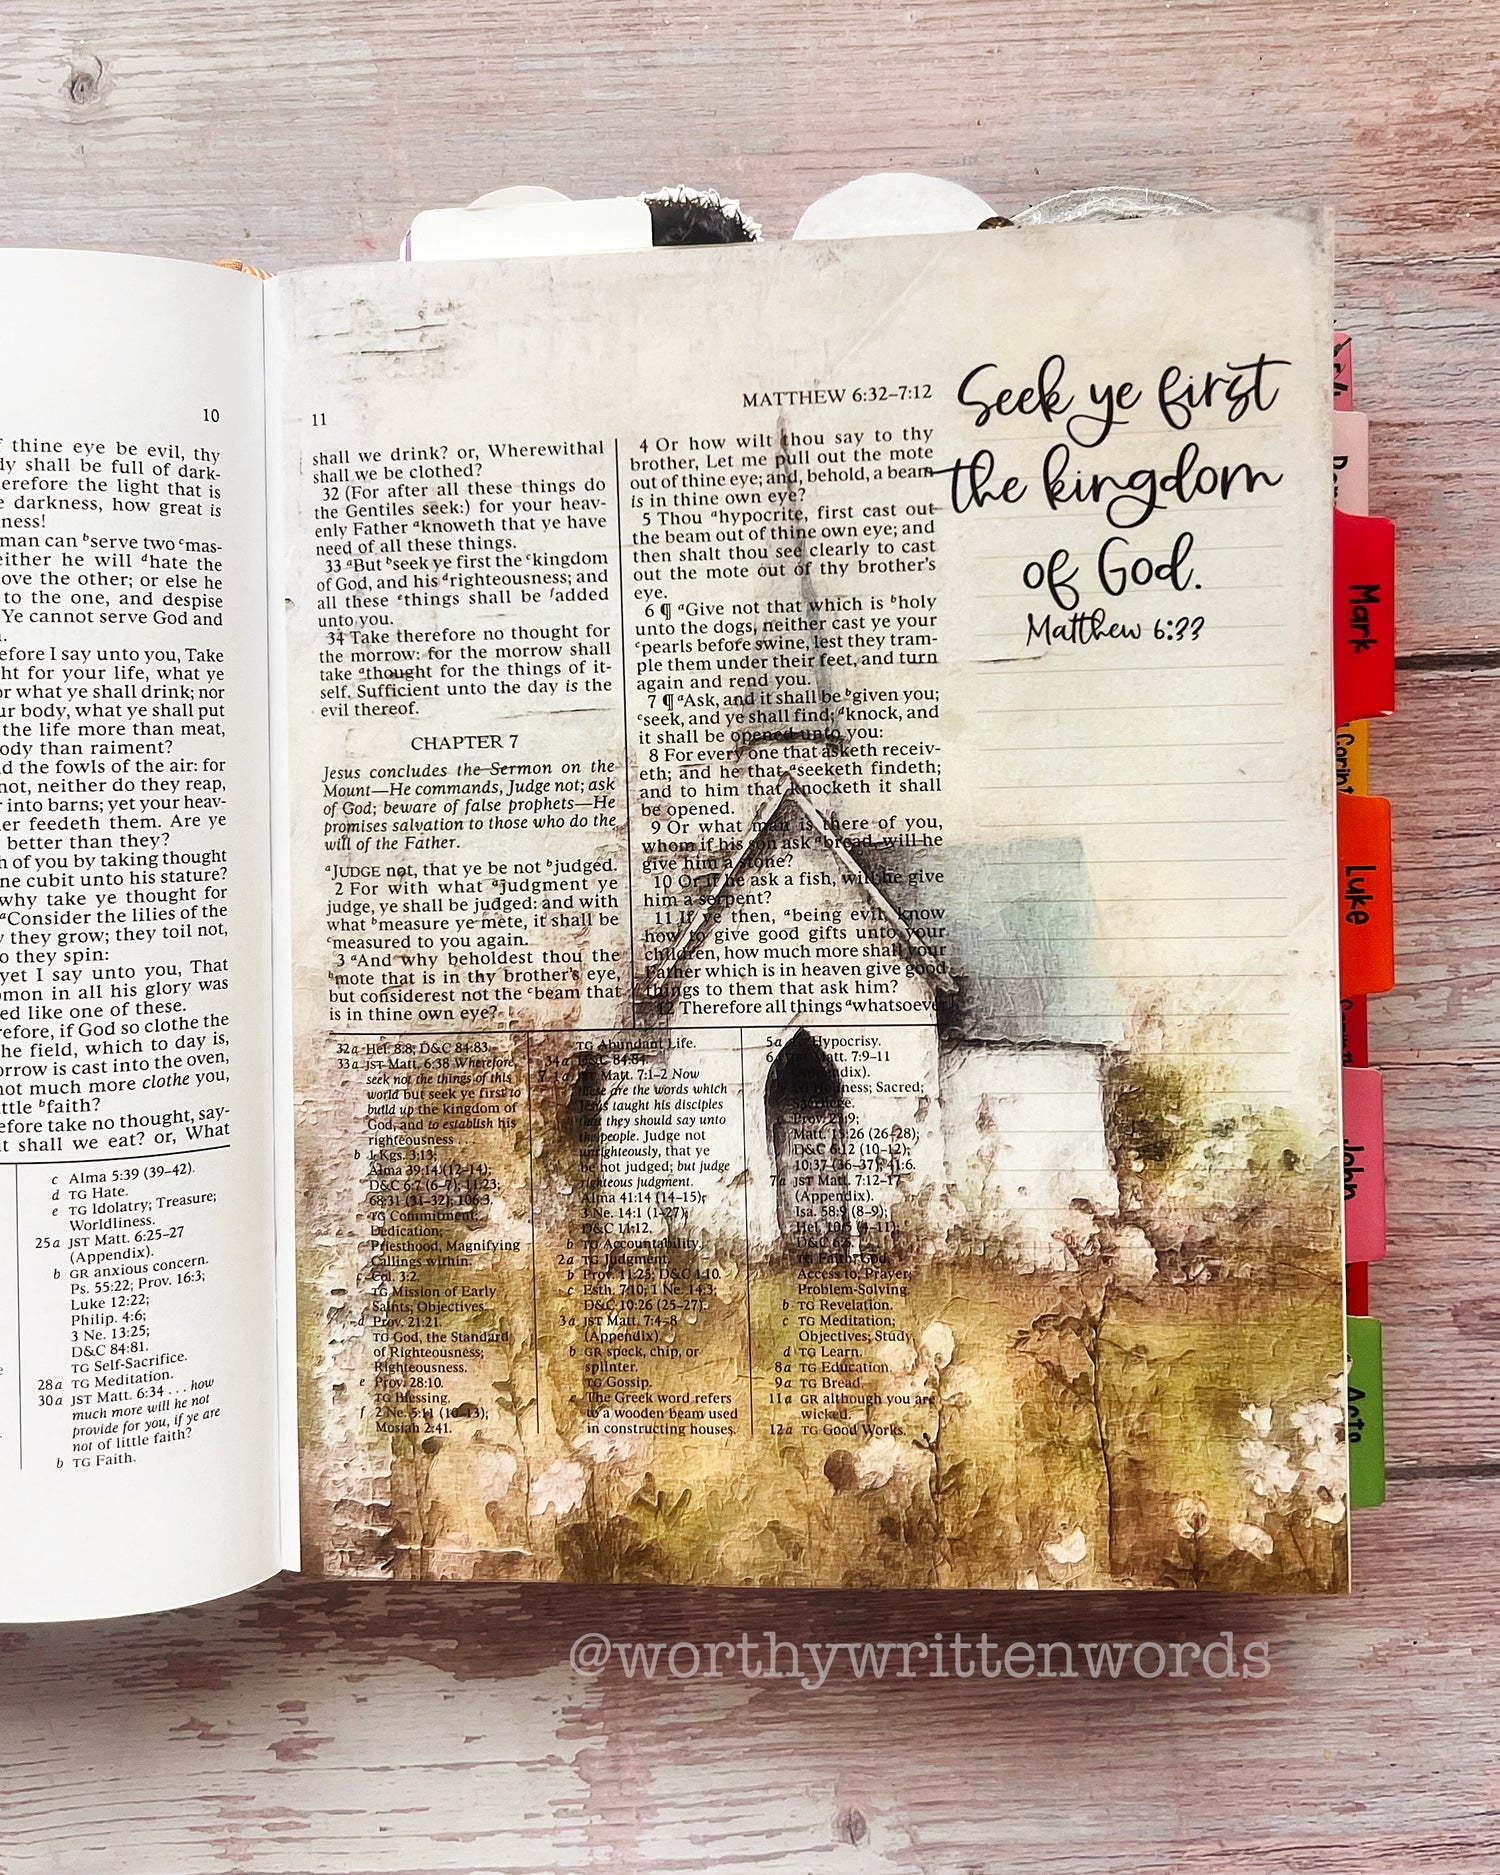 10
f thine eye be evil, thy
dy shall be full of dark-
erefore the light that is
e darkness, how great is
ness!
man can ᵇserve two ᶜmas-
either he will ᵈhate the
ove the other; or else he
to the one, and despise
Ye cannot serve God and
efore I say unto you, Take
ht for your life, what ye
or what ye shall drink; nor
ur body, what ye shall put
the life more than meat,
ody than raiment?
d the fowls of the air: for
not, neither do they reap,
r into barns; yet your heav-
er feedeth them. Are ye
better than they?
h of you by taking thought
ne cubit unto his stature?
why take ye thought for
ᵃConsider the lilies of the
w they grow; they toil not,
o they spin:
yet I say unto you, That
omon in all his glory was
ed like one of these.
refore, if God so clothe the
he field, which to day is,
orrow is cast into the oven,
not much more clothe you,
ttle ᵇfaith?
efore take no thought, say-
at shall we eat? or, What
c Alma 5:39 (39–42).
d TG Hate.
e TG Idolatry; Treasure;
Worldliness.
25a JST Matt. 6:25–27
(Appendix).
b GR anxious concern.
Ps. 55:22; Prov. 16:3;
Luke 12:22;
Philip. 4:6;
3 Ne. 13:25;
D&C 84:81.
TG Self-Sacrifice.
28a TG Meditation.
30a JST Matt. 6:34 . . . how
much more will he not
provide for you, if ye are
not of little faith?
b TG Faith.
11
MATTHEW 6:32–7:12
shall we drink? or, Wherewithal
shall we be clothed?
32 (For after all these things do
the Gentiles seek:) for your heav-
enly Father ᵃknoweth that ye have
need of all these things.
33 ᵃBut ᵇseek ye first the ᶜkingdom
of God, and his ᵈrighteousness; and
all these ᵉthings shall be ᶠadded
unto you.
34 Take therefore no thought for
the morrow: for the morrow shall
take ᵃthought for the things of it-
self. Sufficient unto the day is the
evil thereof.
CHAPTER 7
Jesus concludes the Sermon on the
Mount—He commands, Judge not; ask
of God; beware of false prophets—He
promises salvation to those who do the
will of the Father.
ᵃJUDGE not, that ye be not ᵇjudged.
2 For with what ᵃjudgment ye
judge, ye shall be judged: and with
what ᵇmeasure ye mete, it shall be
ᶜmeasured to you again.
3 ᵃAnd why beholdest thou the
ᵇmote that is in thy brother's eye,
but considerest not the ᶜbeam that
is in thine own eye?
4 Or how wilt thou say to thy
brother, Let me pull out the mote
out of thine eye; and, behold, a beam
is in thine own eye?
5 Thou ᵃhypocrite, first cast out
the beam out of thine own eye; and
then shalt thou see clearly to cast
out the mote out of thy brother's
eye.
6 ¶ ᵃGive not that which is ᵇholy
unto the dogs, neither cast ye your
ᶜpearls before swine, lest they tram-
ple them under their feet, and turn
again and rend you.
7 ¶ ᵃAsk, and it shall be ᵇgiven you;
ᶜseek, and ye shall find; ᵈknock, and
it shall be opened unto you:
8 For every one that asketh receiv-
eth; and he that ᵃseeketh findeth;
and to him that knocketh it shall
be opened.
9 Or what man is there of you,
whom if his son ask ᵃbread, will he
give him a stone?
10 Or if he ask a fish, will he give
him a serpent?
11 If ye then, ᵃbeing evil, know
how to give good gifts unto your
children, how much more shall your
Father which is in heaven give good
things to them that ask him?
12 Therefore all things ᵃwhatsoever
32a Hel. 8:8; D&C 84:83.
33a JST Matt. 6:38 Wherefore,
seek not the things of this
world but seek ye first to
build up the kingdom of
God, and to establish his
righteousness . . .
b 1 Kgs. 3:13;
Alma 39:14 (12–14);
D&C 6:7 (6–7); 11:23;
68:31 (31–32); 106:3.
TG Commitment;
Dedication;
Priesthood, Magnifying
Callings within.
c Col. 3:2.
TG Mission of Early
Saints; Objectives.
d Prov. 21:21.
TG God, the Standard
of Righteousness;
Righteousness.
e Prov. 28:10.
TG Blessing.
f 2 Ne. 5:11 (10–13);
Mosiah 2:41.
TG Abundant Life.
34a D&C 84:84.
7 1a JST Matt. 7:1–2 Now
these are the words which
Jesus taught his disciples
that they should say unto
the people. Judge not
unrighteously, that ye
be not judged; but judge
righteous judgment.
Alma 41:14 (14–15);
3 Ne. 14:1 (1–27);
D&C 11:12.
b TG Accountability.
2a TG Judgment.
b Prov. 11:25; D&C 1:10.
c Esth. 7:10; 1 Ne. 14:3;
D&C 10:26 (25–27).
3a JST Matt. 7:4–8
(Appendix).
b GR speck, chip, or
splinter.
TG Gossip.
c The Greek word refers
to a wooden beam used
in constructing houses.
5a Hypocrisy.
6 Matt. 7:9–11
(Appendix).
Holiness; Sacred;
Sacrifice.
Prov. 23:9;
Matt. 15:26 (26–28);
D&C 6:12 (10–12);
10:37 (36–37); 41:6.
7a JST Matt. 7:12–17
(Appendix).
Isa. 58:9 (8–9);
Hel. 10:5 (4–11);
D&C 6:5.
TG Faith; God,
Access to; Prayer;
Problem-Solving.
b TG Revelation.
c TG Meditation;
Objectives; Study.
d TG Learn.
8a TG Education.
9a TG Bread.
11a GR although you are
wicked.
12a TG Good Works.
Seek ye first
the kingdom
of God.
Matthew 6:33
Mark
Corint
Luke
John
Acts
@worthywrittenwords